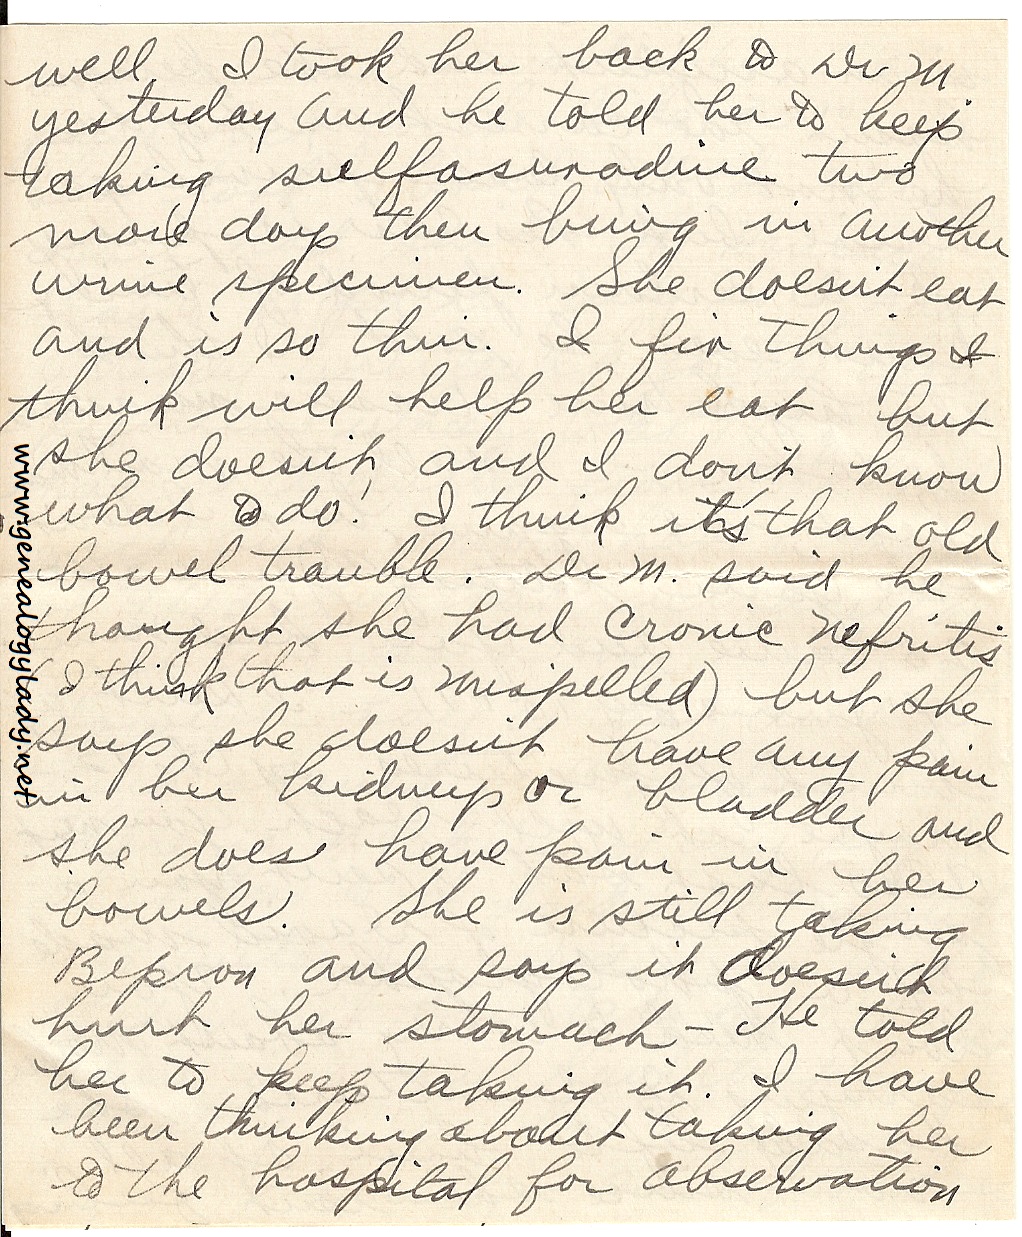 well. I took her back to Dr M
yesterday and he told her to keep
taking sulfasuradine two
more days then bring in another
urine specimen. She doesn't eat
and is so thin. I fix things I
think will help her eat but
she doesn't and I don't know
what to do! I think it's that old
bowel trouble. Dr M. said he
thought she had Cronic Nefritis
(I think that is mispelled) but she
says she doesn't have any pain
in her kidneys or bladder and
she does have pain in her
bowels. She is still taking
Bepron and says it doesn't
hurt her stomach – He told
her to keep taking it. I have
been thinking about taking her
to the hospital for observation
www.genealogylady.net